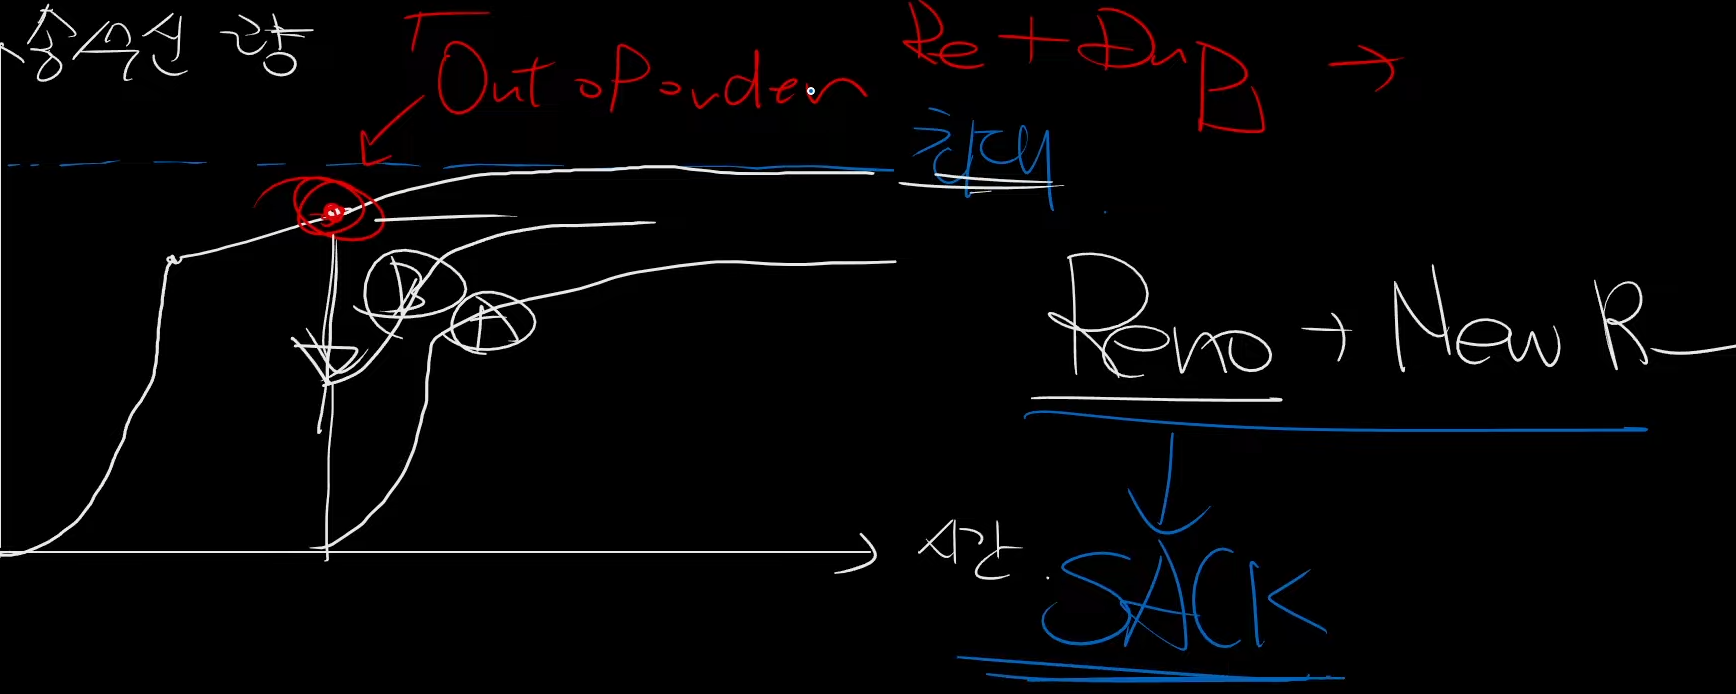 송수신 량
Out of order
Re + Dup →
한계
B
A
Reno → New R
시간
SACK